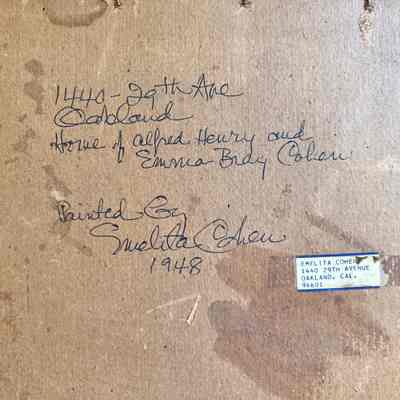 1440 - 29th Ave
Oakland
Home of Alfred Henry and
Emma Bray Cohen
Painted By
Emelita Cohen
1948
EMELITA COHEN
1440 29TH AVENUE
OAKLAND, CAL.
94601